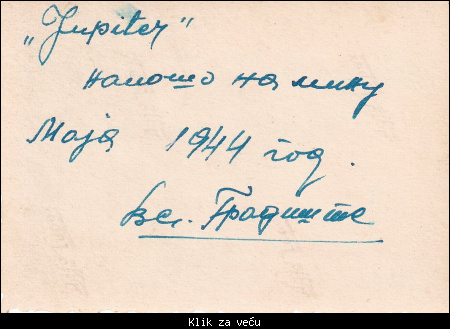 „Jupiter”
наишо на мину
Маја 1944 год.
Вел. Градиште
Klik za veću